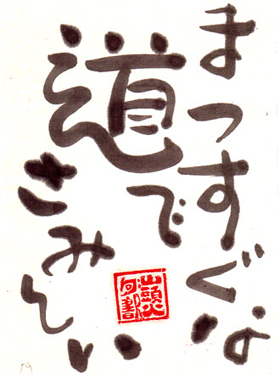 まつすぐな
道で
さみしい
山頭火
句書